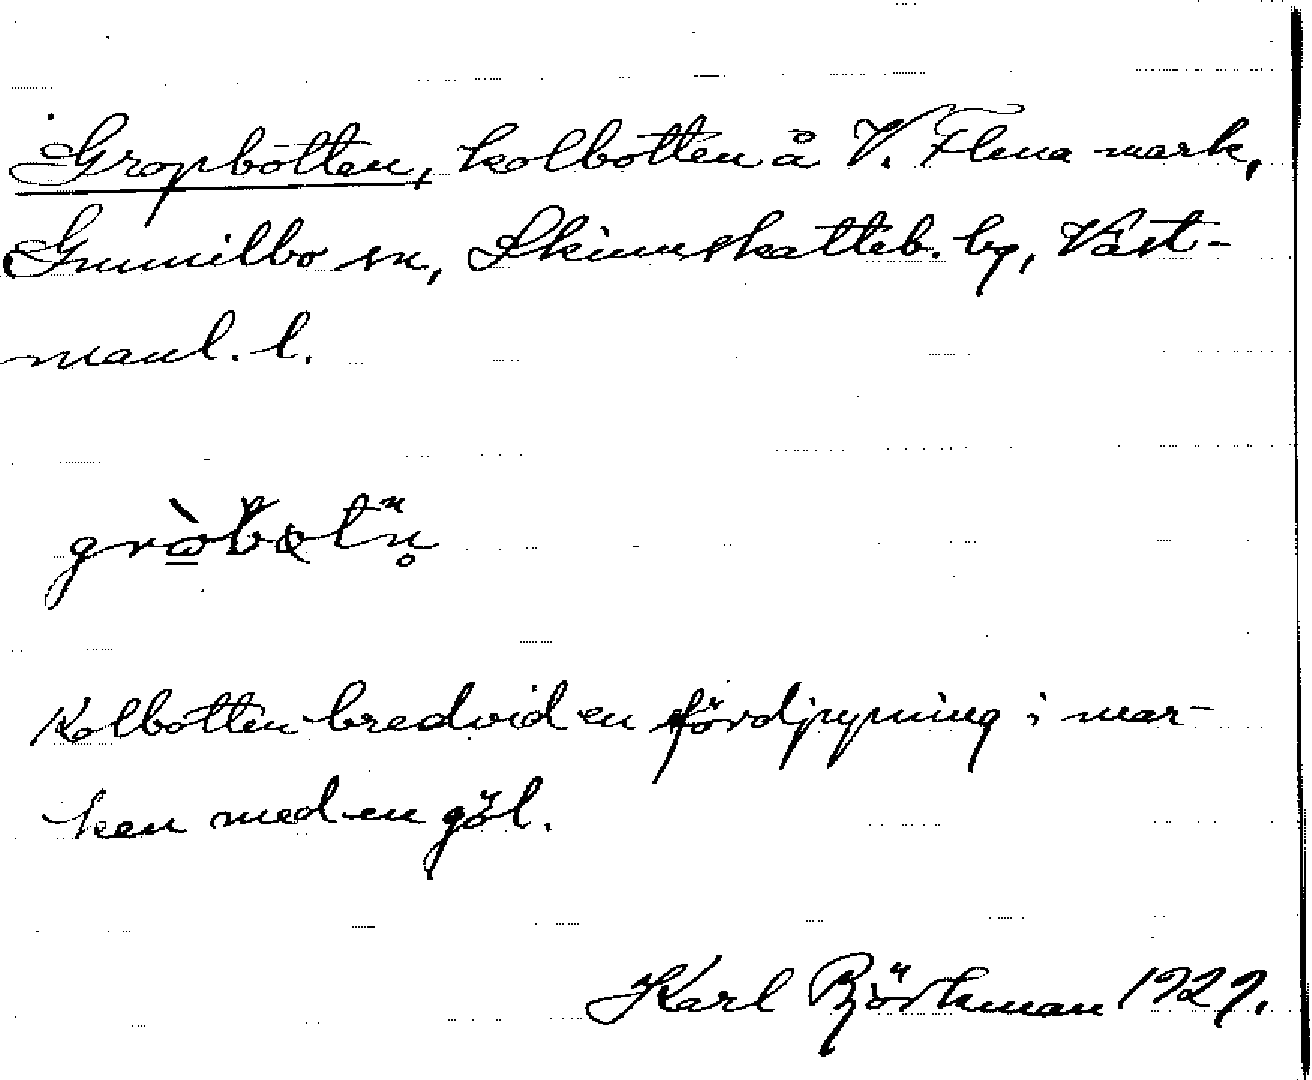 Gropbotten, kolbotten å V. Flena mark,
Gunnilbo sn, Skinnskatteb. bg, Väst-
manl. l.
Kolbotten bredvid en fördjupning i mar-
ken med en göl.
Karl Björkman 1929.